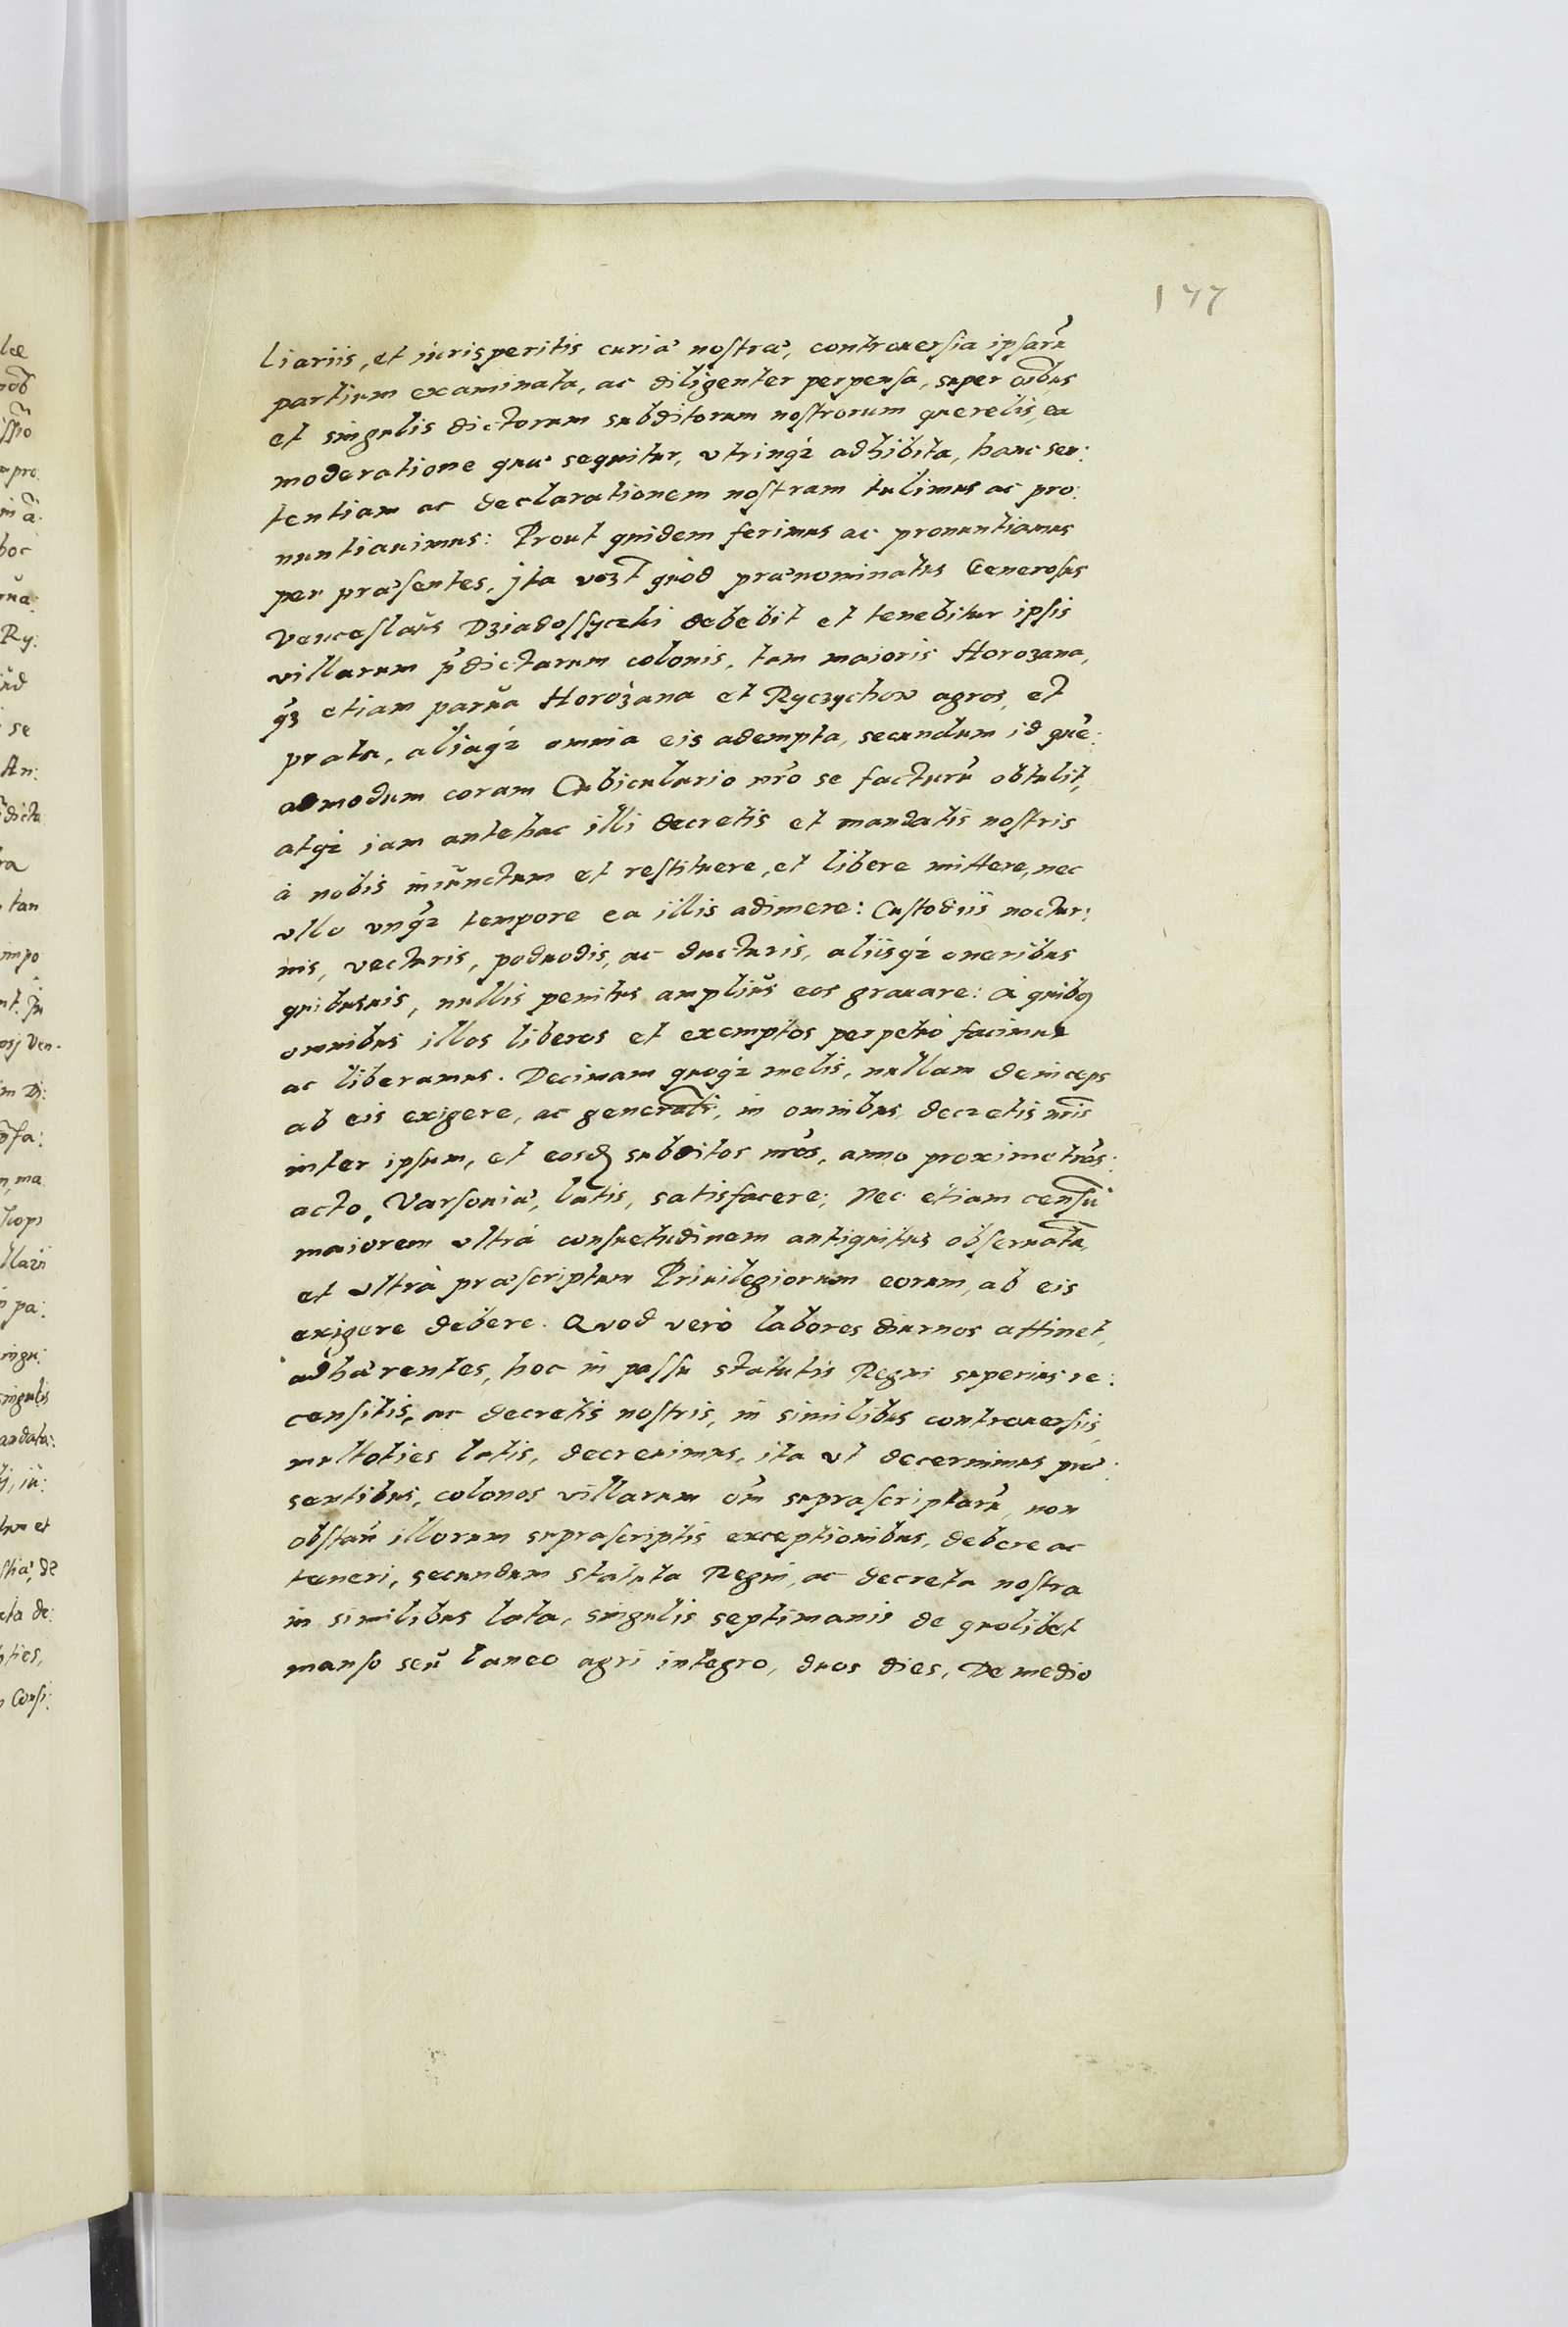 177
liariis, et iurisperitis curiæ nostræ, controuersia ipsarũ
partium examinata, ac diligenter perpensa, super oĩbus
et singulis dictorum subditorum nostrorum querelis, ea
moderatione quæ sequitur, vtrinqꝫ adhibita, hanc sen:
tentiam ac declarationem nostram tulimus ac pro:
nuntiauimus: Prout quidem ferimus ac pronuntiamus
per præsentes, jta vozt̃ quòd prænominatus Generosus
Venceslaus Dziadossyczki debebit et tenebitur ipsis
villarum p̃dictarum colonis, tam maioris Horozana,
q̃ꝫ etiam parua Horozana et Ryczychow agros, et
prata, aliaqꝫ omnia eis adempta, secundum id quẽ:
admodum coram Cubiculario nr̃o se facturũ obtulit,
atqꝫ iam antehac illi decretis et mandatis nostris
à nobis iniunctum et restituere, et libere mittere, nec
vllo vnq̃ꝫ tempore ea illis adimere: Custodiis noctur:
nis, vecturis, poduodis, ac ducturis, aliisqꝫ oneribus
quibusuis, nullis penitus amplius eos grauare: à quibꝯ
omnibus illos liberos et exemptos perpetuò facimus
ac liberamus. Decimam quoqꝫ melis, nullam deinceps
ab eis exigere, ac generalr̃, in omnibus decretis nr̃is
inter ipsum, et eosđ subditos nr̃os, anno proximè trãs:
acto, Varsouiæ, latis, satisfacere; Nec etiam censũ
maiorem vltrà consuetudinem antiquitus obseruatã,
et vltrà præscriptum Priuilegiorum eorum, ab eis
exigere debere. Quod verò labores diurnos attinet,
adhærentes, hoc in passu statutis Regni superius re:
censitis, ac decretis nostris, in similibus controuersiis,
multoties latis, decreuimus, ita vt decernimus præ:
sentibus, colonos villarum om̃ suprascriptarũ, non
obstañ illorum suprascriptis exceptionibus, debere ac
teneri, secundum statuta Regni, ac decreta nostra
in similibus lata, singulis septimanis de quolibet
manso seu laneo agri integro, duos dies, De medio